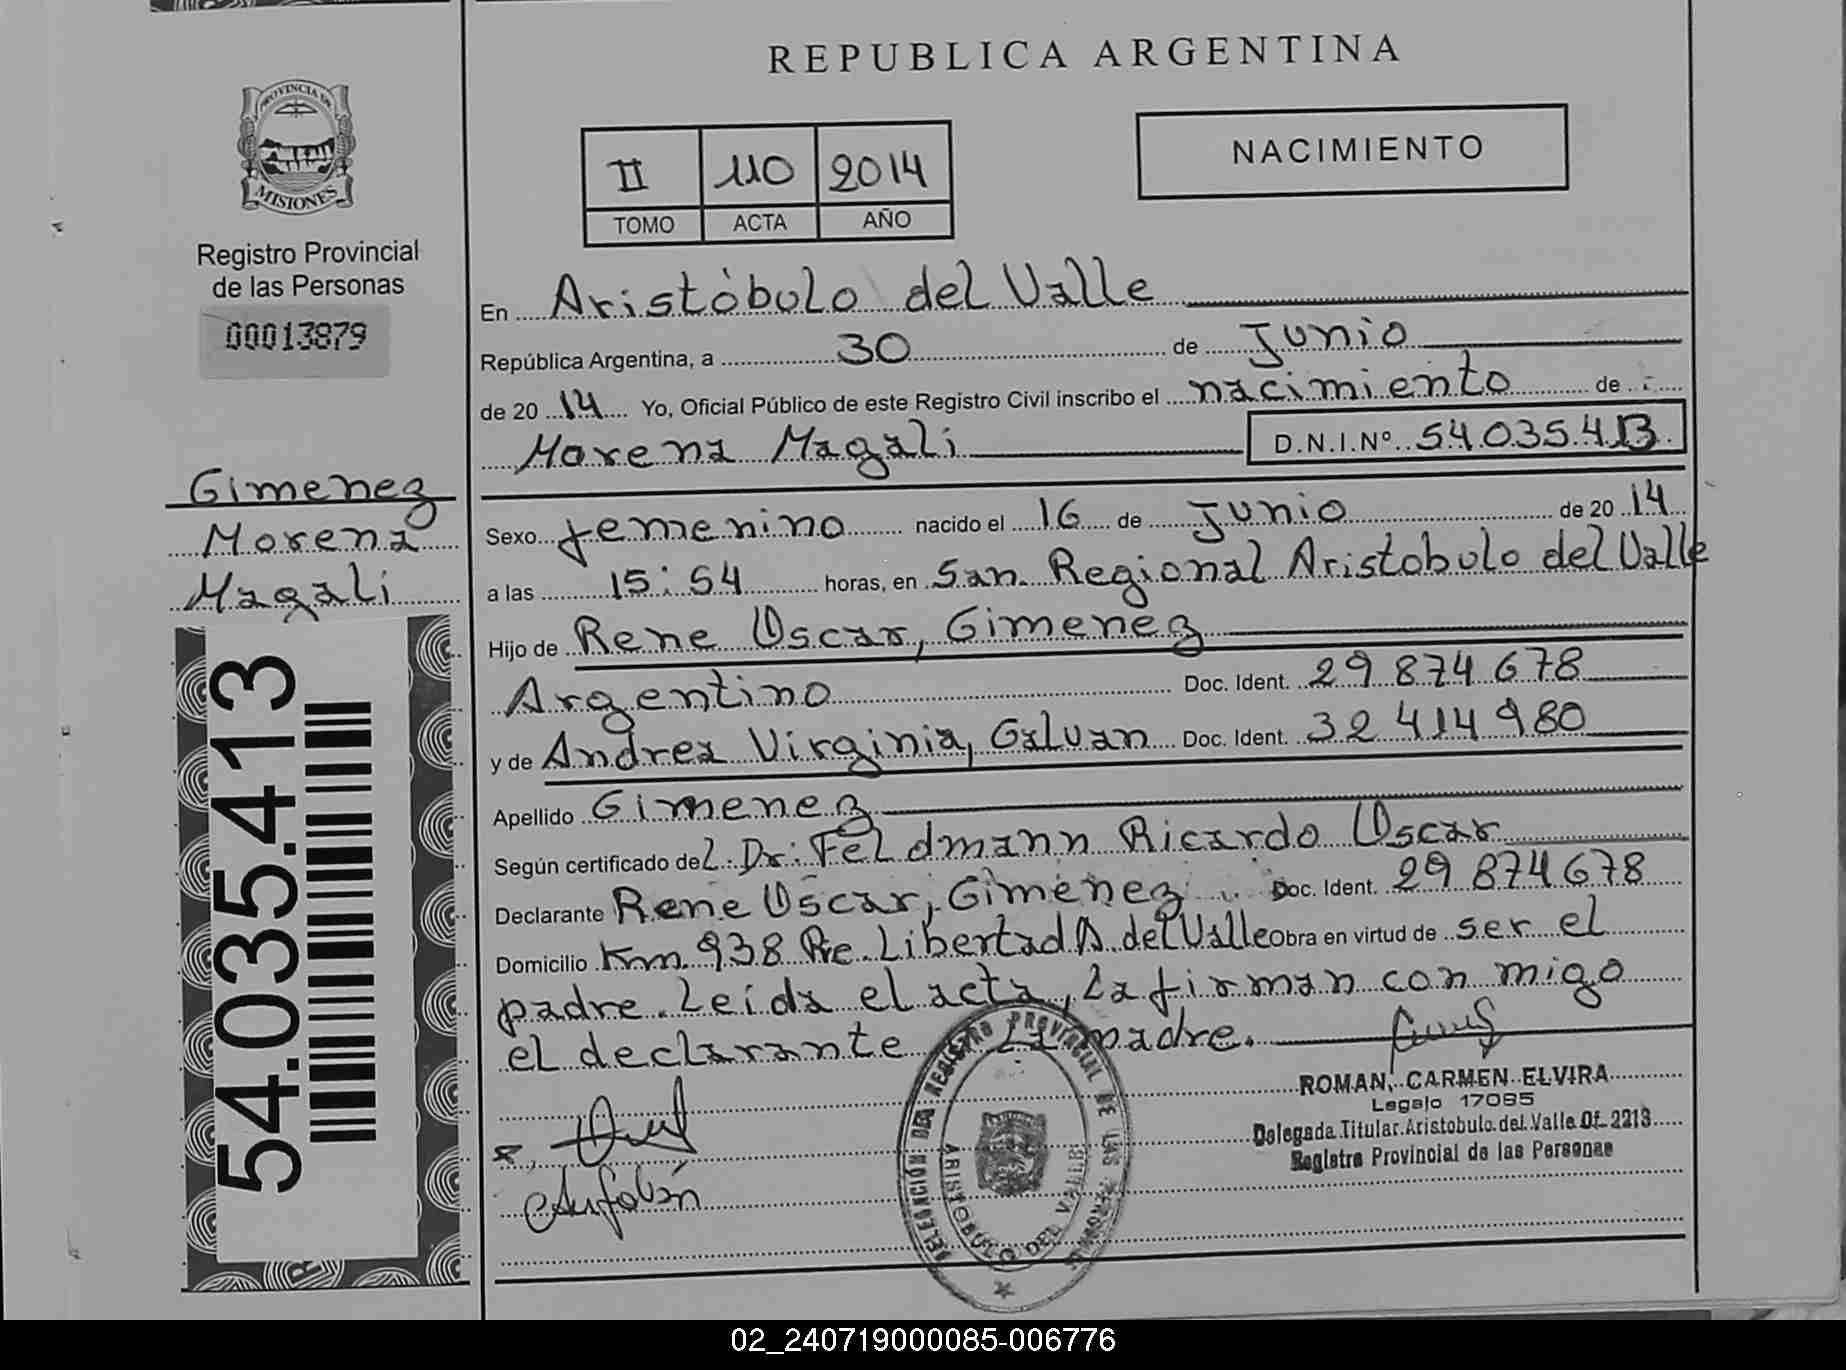 REPUBLICA ARGENTINA
PROVINCIA DE
MISIONES
Registro Provincial
de las Personas
00013879
II 110 2014
TOMO ACTA AÑO
NACIMIENTO
En Aristóbulo del Valle
República Argentina, a 30 de Junio
de 20 14 Yo, Oficial Público de este Registro Civil inscribo el nacimiento de
Morena Magali D.N.I.Nº 54.035.413
Gimenez
Morena
Magali
54.035.413
Sexo femenino nacido el 16 de Junio de 20 14
a las 15:54 horas, en San. Regional Aristobulo del Valle
Hijo de Rene Oscar, Gimenez
Argentino Doc. Ident. 29 874 678
y de Andrea Virginia, Galvan Doc. Ident. 32 414 980
Apellido Gimenez
Según certificado del Dr: Feldmann Ricardo Oscar
Declarante Rene Oscar, Gimenez Doc. Ident. 29 874 678
Domicilio Km. 938 Pje. Libertad A. del Valle Obra en virtud de ser el
padre. Leída el acta, la firman con migo
el declarante y la madre.
ROMAN, CARMEN ELVIRA
Legajo 17085
Delegada Titular Aristobulo del Valle Of. 2213
Registro Provincial de las Personas
DELEGACIÓN DEL REGISTRO PROVINCIAL DE LAS PERSONAS
ARISTOBULO DEL VALLE
02_240719000085-006776